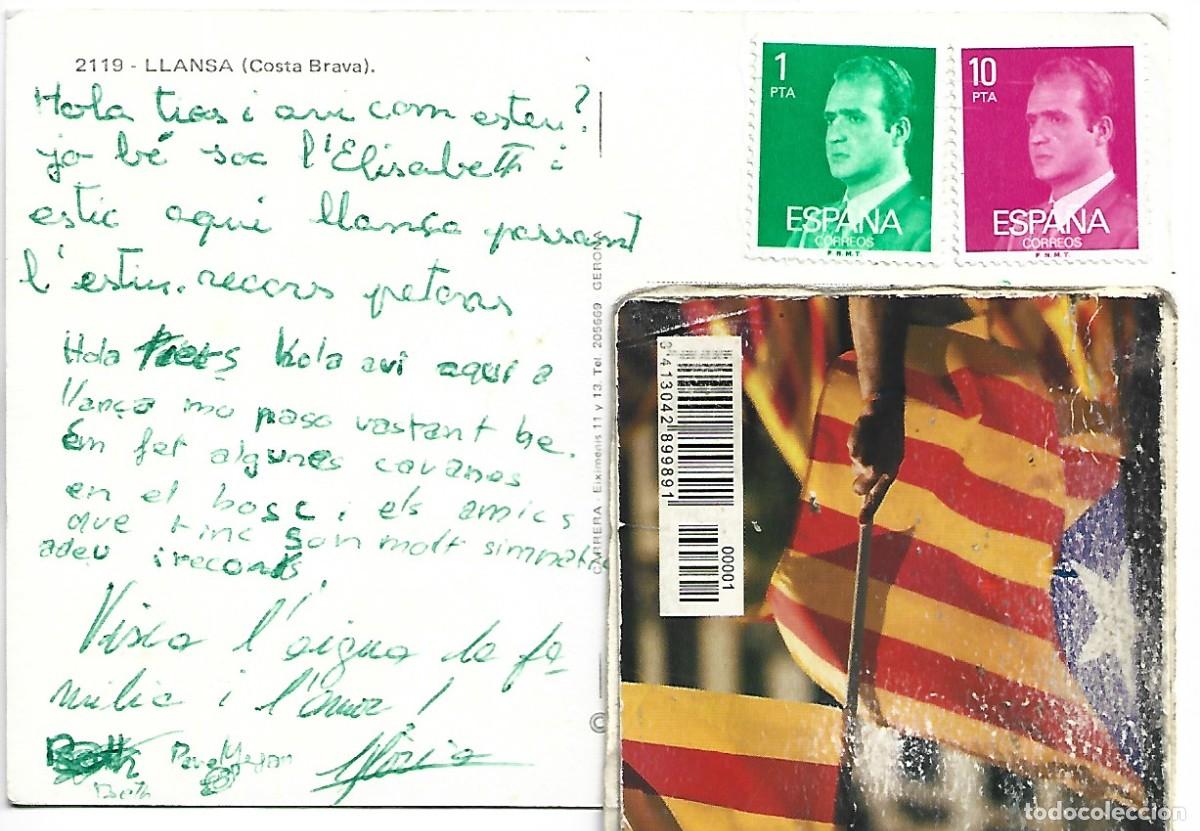 2119 - LLANSA (Costa Brava).
Hola tias i avi com esteu?
jo bé soc l'Elisabeth i
estic aqui llança passant
l'estiu. recors petons
Hola tiets hola avi aqui a
llança mo paso vastant be.
em fet algunes cavanes
en el bosc i els amics
que tinc son molt simpatic
adeu i records
Visca l'aigua la fa
milia i l'amor!
Beth
Glòria
1
PTA
ESPAÑA
CORREOS
F.N.M.T.
10
PTA
ESPAÑA
CORREOS
F.N.M.T.
Eiximenis 11 y 13. Tel. 205669 GERO
©
0413042899891
00001
todocoleccion